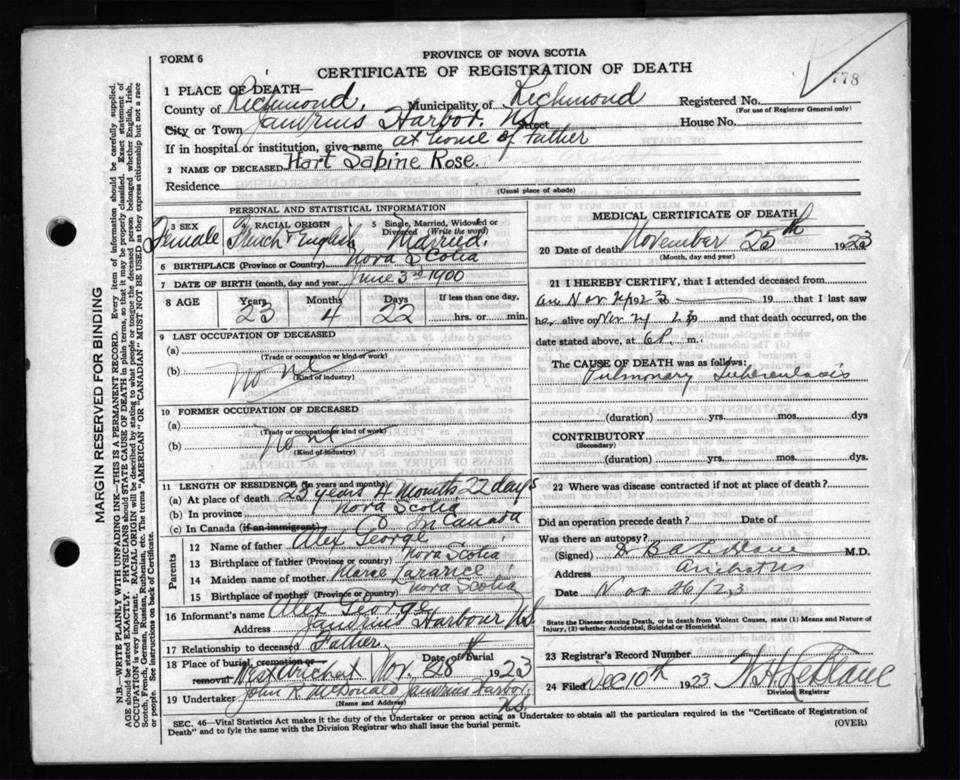 FORM 6
PROVINCE OF NOVA SCOTIA
CERTIFICATE OF REGISTRATION OF DEATH
778
1 PLACE OF DEATH—
County of Richmond, Municipality of Richmond Registered No.
(For use of Registrar General only)
City or Town Janvrins Harbor. N.S. Street House No.
If in hospital or institution, give name at home of Father
2 NAME OF DECEASED Hart Sabine Rose.
Residence
(Usual place of abode)
PERSONAL AND STATISTICAL INFORMATION
3 SEX Female RACIAL ORIGIN French + English 5 Single, Married, Widowed or Divorced (Write the word) Married.
6 BIRTHPLACE (Province or Country) Nova Scotia
7 DATE OF BIRTH (month, day and year) June 3rd 1900
8 AGE Years 23 Months 4 Days 22 If less than one day, hrs. or min.
9 LAST OCCUPATION OF DECEASED
(a)
(Trade or occupation or kind of work)
(b) None
(Kind of industry)
10 FORMER OCCUPATION OF DECEASED
(a)
(Trade or occupation or kind of work)
(b) None
(Kind of industry)
11 LENGTH OF RESIDENCE (in years and months)
(a) At place of death 23 years 4 Months 22 days
(b) In province Nova Scotia
(c) In Canada (if an immigrant) In Canada
Parents
12 Name of father Alex George
13 Birthplace of father (Province or Country) Nova Scotia
14 Maiden name of mother
15 Birthplace of mother (Province or country) Nova Scotia
16 Informant's name Alex George
Address Janvrins Harbour N.S.
17 Relationship to deceased Father
18 Place of burial, cremation or removal West Arichat Date of burial Nov. 28th 1923
19 Undertaker John R McDonald Janvrins Harbor, N.S.
(Name and Address)
MEDICAL CERTIFICATE OF DEATH
20 Date of death November 25th 1923
(Month, day and year)
21 I HEREBY CERTIFY, that I attended deceased from
Nov 19 that I last saw
her alive on Nov and that death occurred, on the
date stated above, at 6 P. m.
The CAUSE OF DEATH was as follows:
Pulmonary Tuberculosis
(duration) yrs. mos. dys
CONTRIBUTORY
(Secondary)
(duration) yrs. mos. dys
22 Where was disease contracted if not at place of death?
Did an operation precede death? Date of
Was there an autopsy?
(Signed) Dr B A LeBlanc M.D.
Address Arichat NS
Date Nov 26/23
State the Disease causing Death, or in death from Violent Causes, state (1) Means and Nature of
Injury, (2) whether Accidental, Suicidal or Homicidal.
23 Registrar's Record Number
24 Filed Dec 10th 1923 LeBlanc
Division Registrar
SEC. 46—Vital Statistics Act makes it the duty of the Undertaker or person acting as Undertaker to obtain all the particulars required in the "Certificate of Registration of
Death" and to fyle the same with the Division Registrar who shall issue the burial permit. (OVER)
MARGIN RESERVED FOR BINDING
N.B.—WRITE PLAINLY WITH UNFADING INK—THIS IS A PERMANENT RECORD. Every item of information should be carefully supplied.
AGE should be stated EXACTLY. PHYSICIANS should STATE CAUSE OF DEATH in plain terms, so that it may be properly classified. Exact statement of
OCCUPATION is very important. RACIAL ORIGIN will be described by stating to what people or tongue the deceased person belonged whether English, Irish,
Scotch, French, German, Russian, Ruthenian, etc. The terms "AMERICAN" or "CANADIAN" MUST NOT BE USED as they express citizenship but not a race
of people. See instructions on back of Certificate.